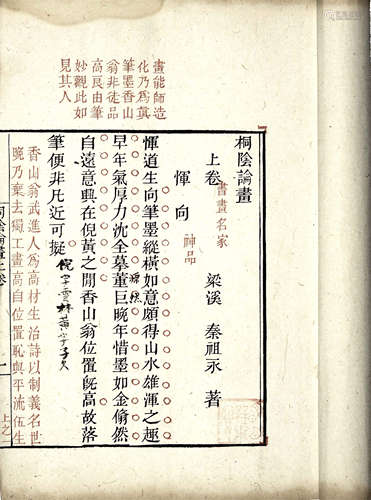 畫能師造
化乃為真
筆墨香山
翁非徒品
高良由筆
妙觀此如
見其人
桐陰論畫
上卷 書畫名家 梁溪 秦祖永 著
惲向 神品
惲道生向筆墨縱橫如意頗得山水雄渾之趣
早年氣厚力沈全摹董巨晚年惜墨如金翛然
自遠意興在倪黃之閒香山翁位置旣高故落
筆便非凡近可擬 倪字雲林黃字子久
香山翁武進人為高材生治詩以制義名世
晚乃棄去獨工畫高自位置恥與平流伍生